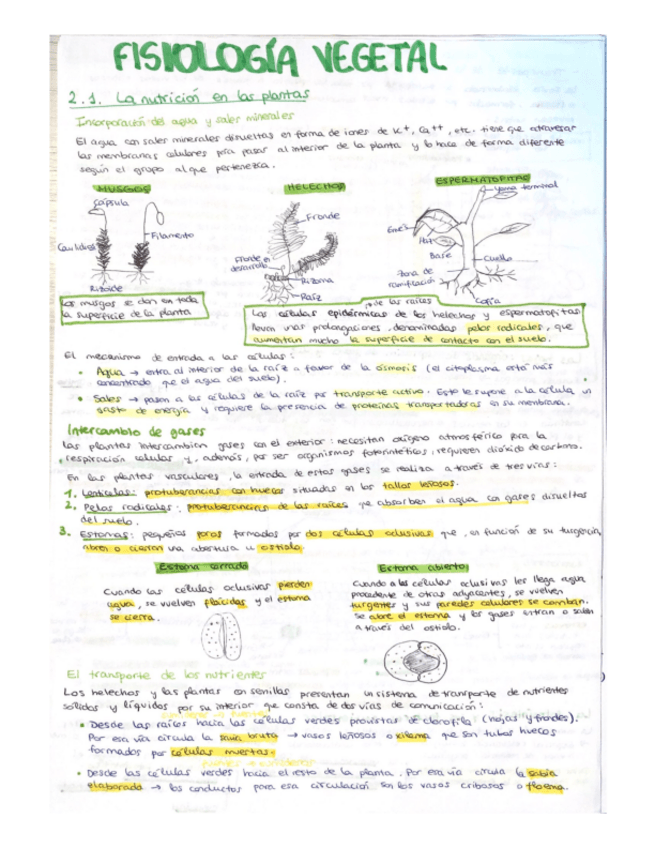 FISIOLOGÍA VEGETAL
2.1. La nutrición en las plantas
Incorporación del agua y sales minerales
El agua con sales minerales disueltas en forma de iones de K+, Ca++, etc. tiene que atravesar
las membranas celulares para pasar al interior de la planta y lo hace de forma diferente
según el grupo al que pertenezca.
MUSGOS
HELECHOS
ESPERMATOFITAS
Cápsula
Filamento
Caulidios
Rizoide
Fronde
Fronde en
desarrollo
Rizoma
Raíz
Yema terminal
Base
Cuello
Zona de
ramificación
Cofia
Los musgos se dan en toda
la superficie de la planta
de las raíces
Las células epidérmicas de los helechos y espermatofitas
llevan unas prolongaciones, denominadas pelos radicales, que
aumentan mucho la superficie de contacto con el suelo.
El mecanismo de entrada a las células:
• Agua → entra al interior de la raíz a favor de la ósmosis (el citoplasma está más
concentrado que el agua del suelo).
• Sales → pasan a las células de la raíz por transporte activo. Esto le supone a la célula un
gasto de energía y requiere la presencia de proteínas transportadoras en su membrana.
Intercambio de gases
Las plantas intercambian gases con el exterior: necesitan oxígeno atmosférico para la
respiración celular y, además, por ser organismos fotosintéticos, requieren dióxido de carbono.
En las plantas vasculares, la entrada de estos gases se realiza a través de tres vías:
1. Lenticelas: protuberancias con huecos situadas en los tallos leñosos.
2. Pelos radicales: protuberancias de las raíces que absorben el agua con gases disueltos
del suelo.
3. Estomas: pequeños poros formados por dos células oclusivas que, en función de su turgencia,
abren o cierran una abertura u ostiolo.
Estoma cerrado
Estoma abierto
Cuando las células oclusivas pierden
agua, se vuelven flácidas y el estoma
se cierra.
Cuando a las células oclusivas les llega agua
procedente de otras adyacentes, se vuelven
turgentes y sus paredes celulares se comban.
Se abre el estoma y los gases entran o salen
a través del ostiolo.
El transporte de los nutrientes
Los helechos y las plantas con semillas presentan un sistema de transporte de nutrientes
sólidos y líquidos por su interior que consta de dos vías de comunicación:
• Desde las raíces hacia las células verdes provistas de clorofila (hojas y frondes).
Por esa vía circula la savia bruta → vasos leñosos o xilema que son tubos huecos
formados por células muertas.
• Desde las células verdes hacia el resto de la planta. Por esa vía circula la sabia
elaborada → los conductos para esa circulación son los vasos cribosos o floema.